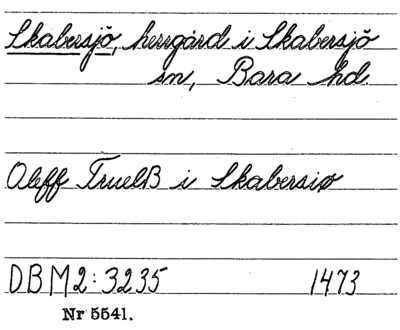 Skabersjö, herrgård i Skabersjö
sn, Bara hd.
Oleff TruelB i Skabersiø
DBM2:3235 1473
Nr 5541.